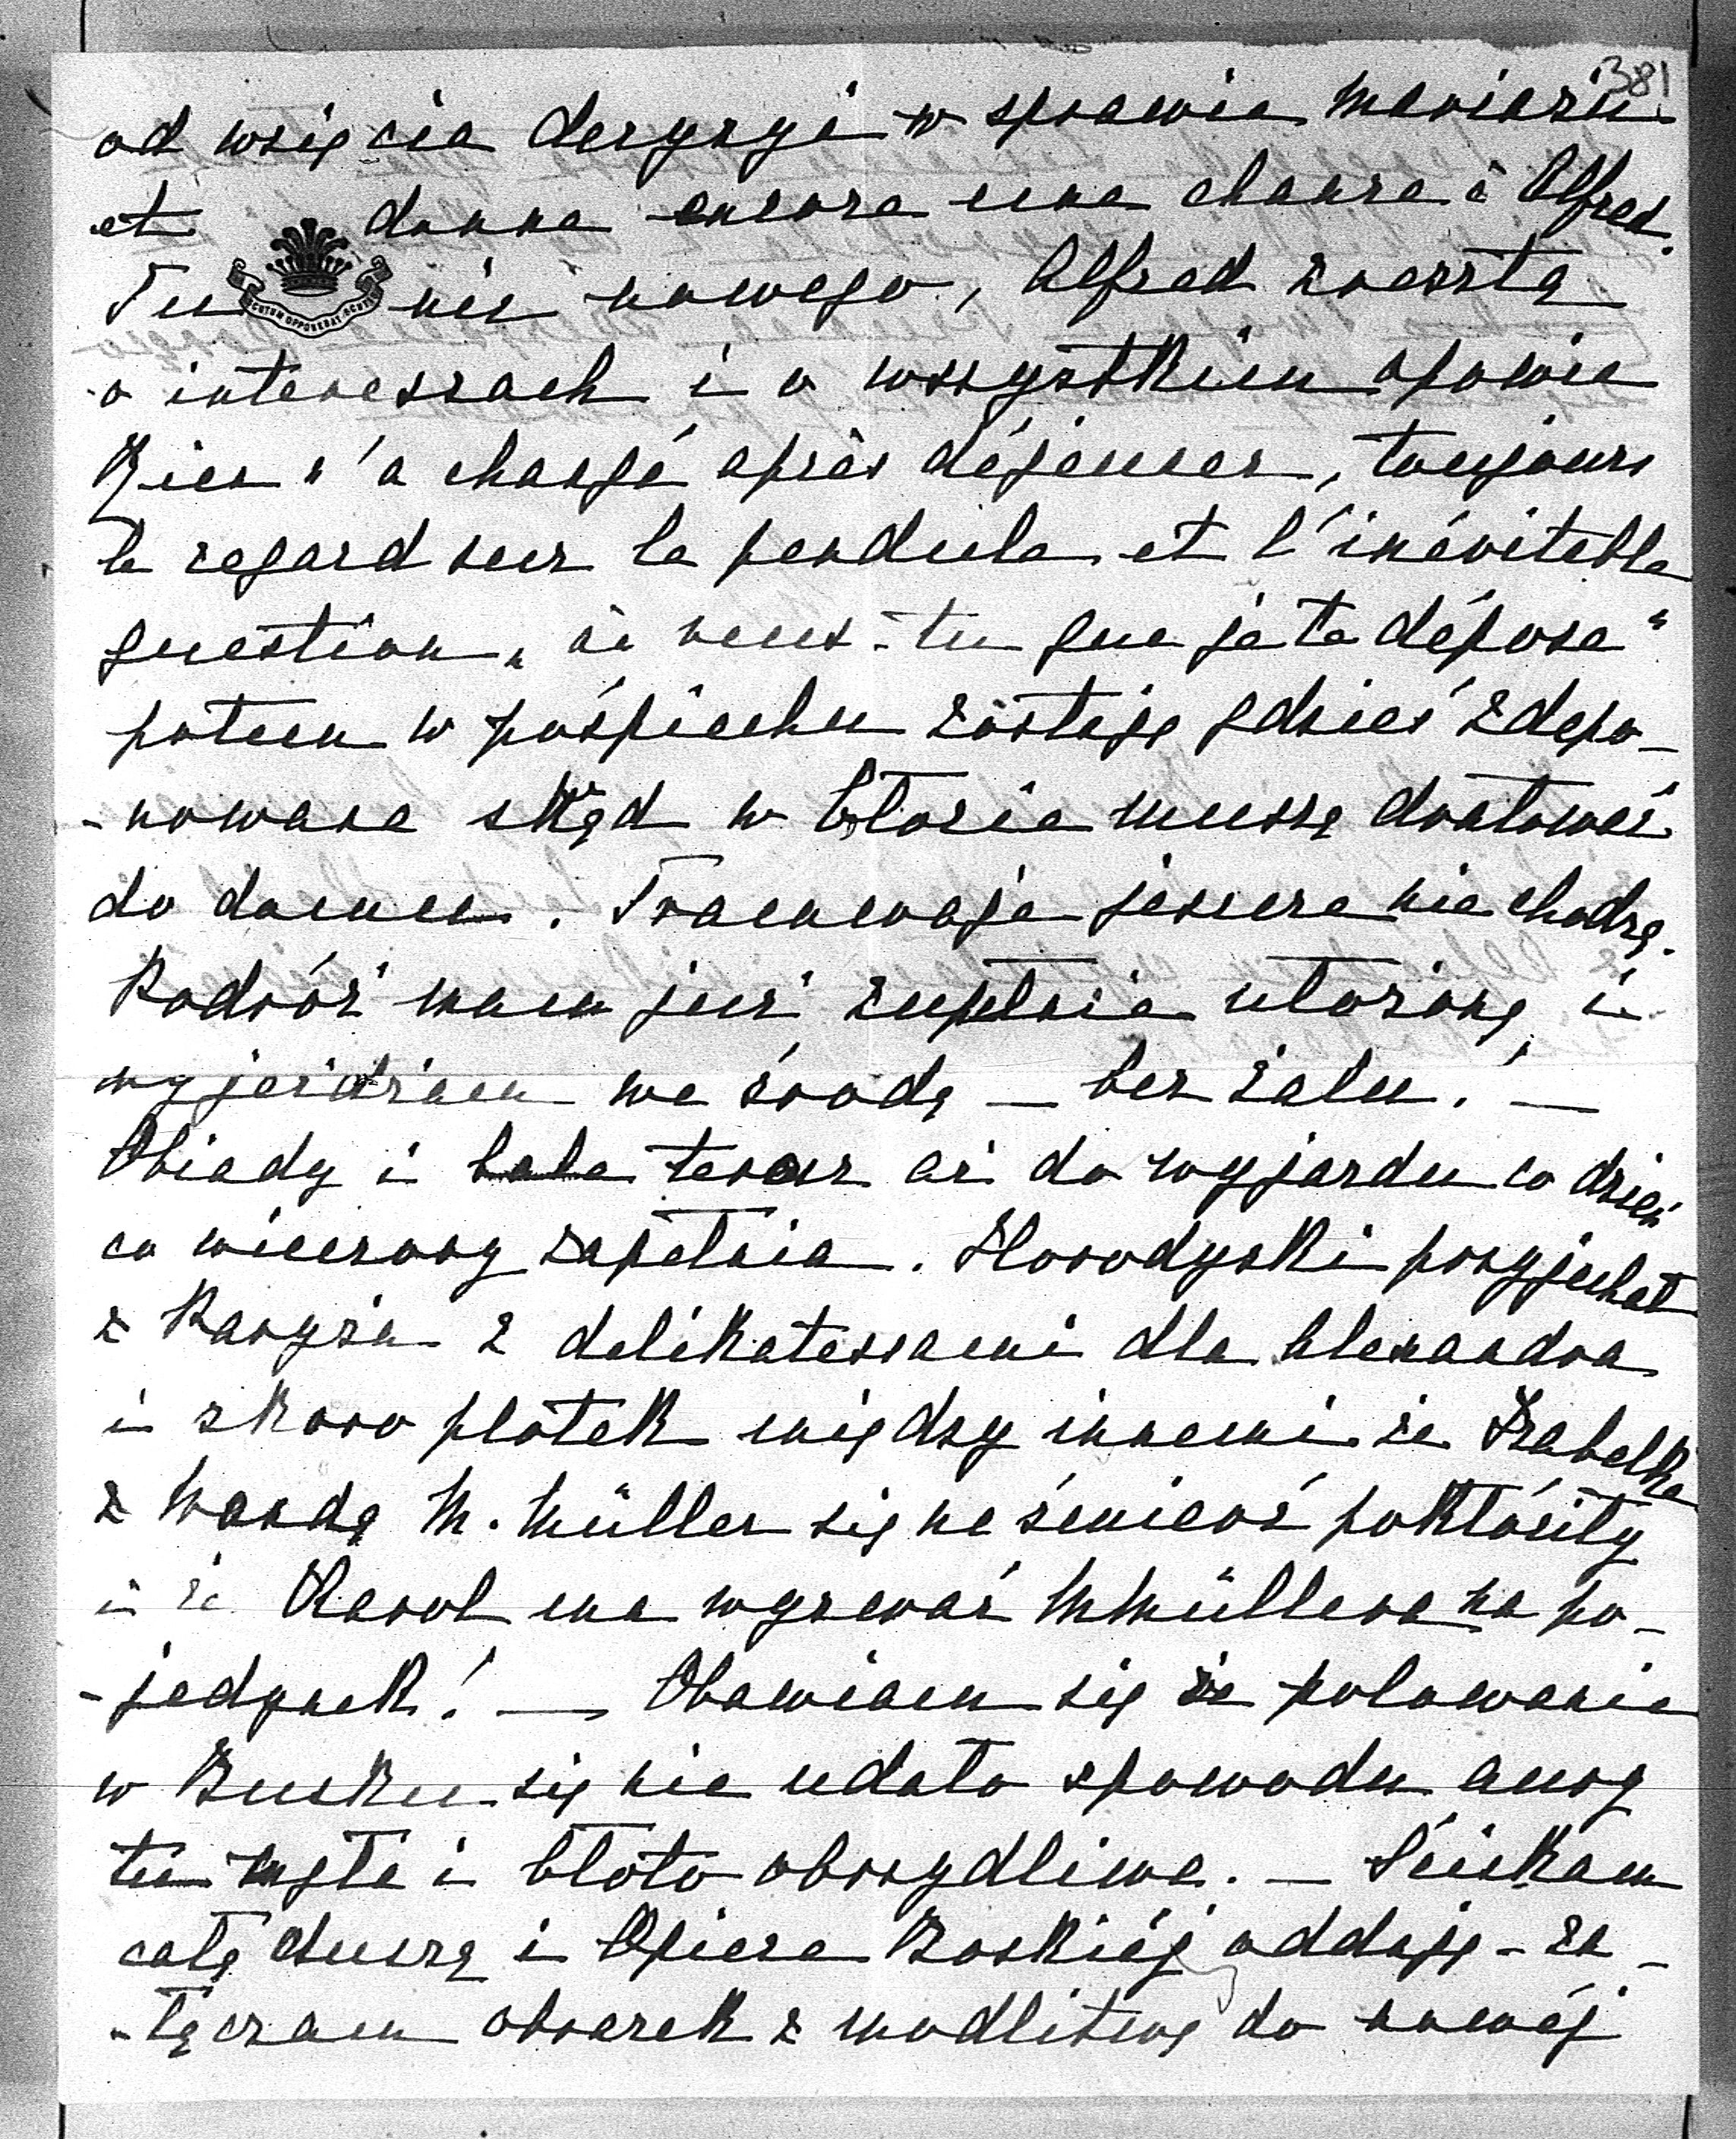 381
od wzięcia decyzyi w sprawie mariażu
et donne encore une chance à Alfred.
Tu nic nowego, Alfred zresztą
SCUTUM OPPONEBAT SCUTIS
o interessach i o wszystkim opowie
Rien n'a changé après déjeuner, toujours
le regard sur la pendule et l'inévitable
question „où veux-tu que je te dépose"
potem w pośpiechu zostaję gdzieś zdepo-
-nowane skąd w błocie muszę dralować
do domu. Tramwaje jeszcze nie chodzą.
Podróż mam już zupełnie ułożoną i
wyjeżdżam we środę — bez żalu! —
Obiady i bale teraz aż do wyjazdu co dzień
co wieczory zapełnia. Horodyski przyjechał
z Paryża z delikatessami dla Alexandra
i skoro plotek między innemi że Izabelka
z Wandą M. Müller się na śmierć pokłóciły
i że Karol ma wyzwać MMüllera na po-
-jedynek! — Obawiam się że polowanie
w Busku się nie udało spowodu aury
tu mgła i błoto obrzydliwe. — Ściskam
całą duszą i Opiece Boskiéj oddaję - za-
-łączam obrazek z modlitwą do nowéj